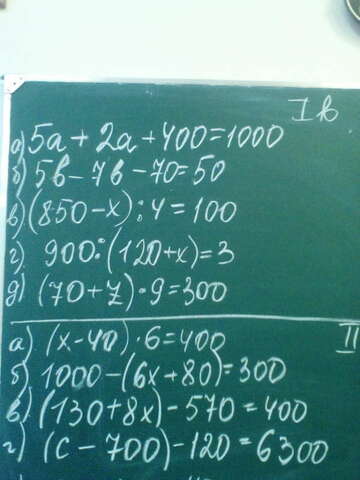 I в
а) 5a + 2a + 400 = 1000
б) 5в - 4в - 70 = 50
в) (850 - x) : 4 = 100
г) 900 : (120 + x) = 3
д) (70 + z) · 9 = 300
II
а) (x - 40) · 6 = 400
б) 1000 - (6x + 80) = 300
в) (130 + 8x) - 570 = 400
г) (c - 700) - 120 = 6300